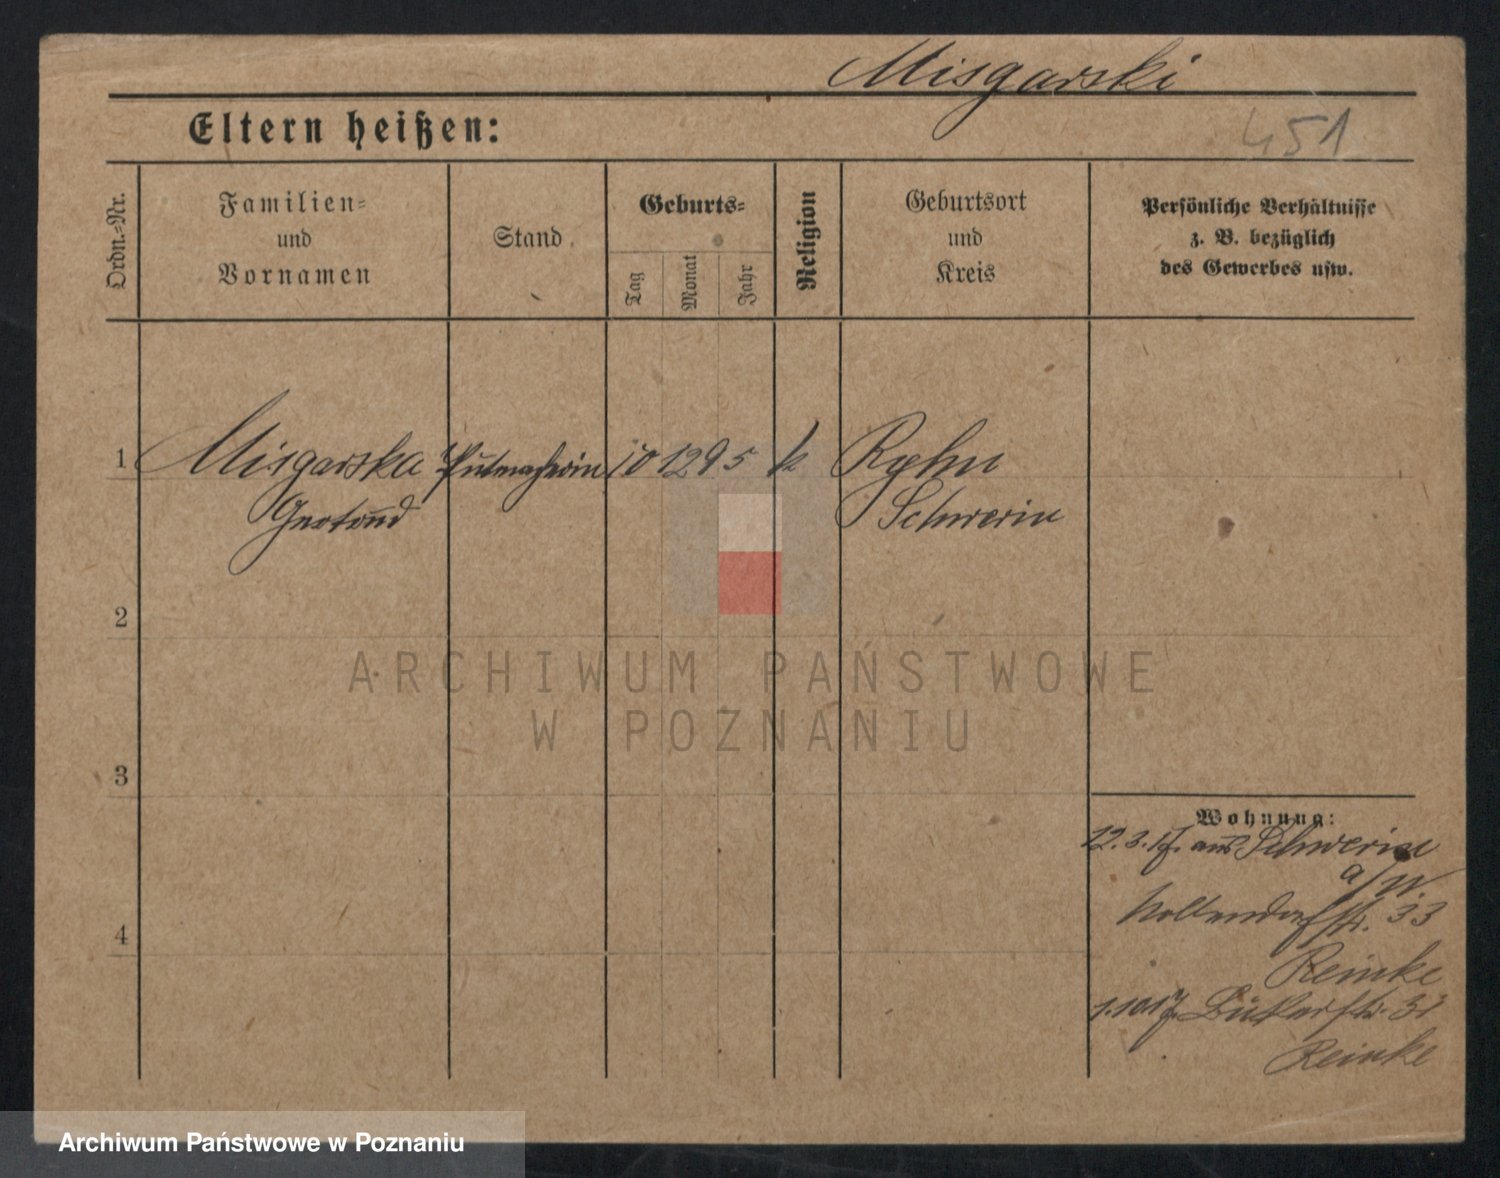 Misgarski
Eltern heißen:
451
Ordn.-Nr.
Familien-
und
Vornamen
Stand
Geburts-
Tag
Monat
Jahr
Religion
Geburtsort
und
Kreis
Persönliche Verhältnisse
z. B. bezüglich
des Gewerbes usw.
1 Misgarska Putmacherin 10 12 95 k
Gertrud Schwerin
2
3
4
Wohnung:
12. 3. 17. aus Schwerin
a/W.
Nollendorfstr. 33
Reinke
1. 10. 17. 31
Reinke
ARCHIWUM PAŃSTWOWE
W POZNANIU
Archiwum Państwowe w Poznaniu